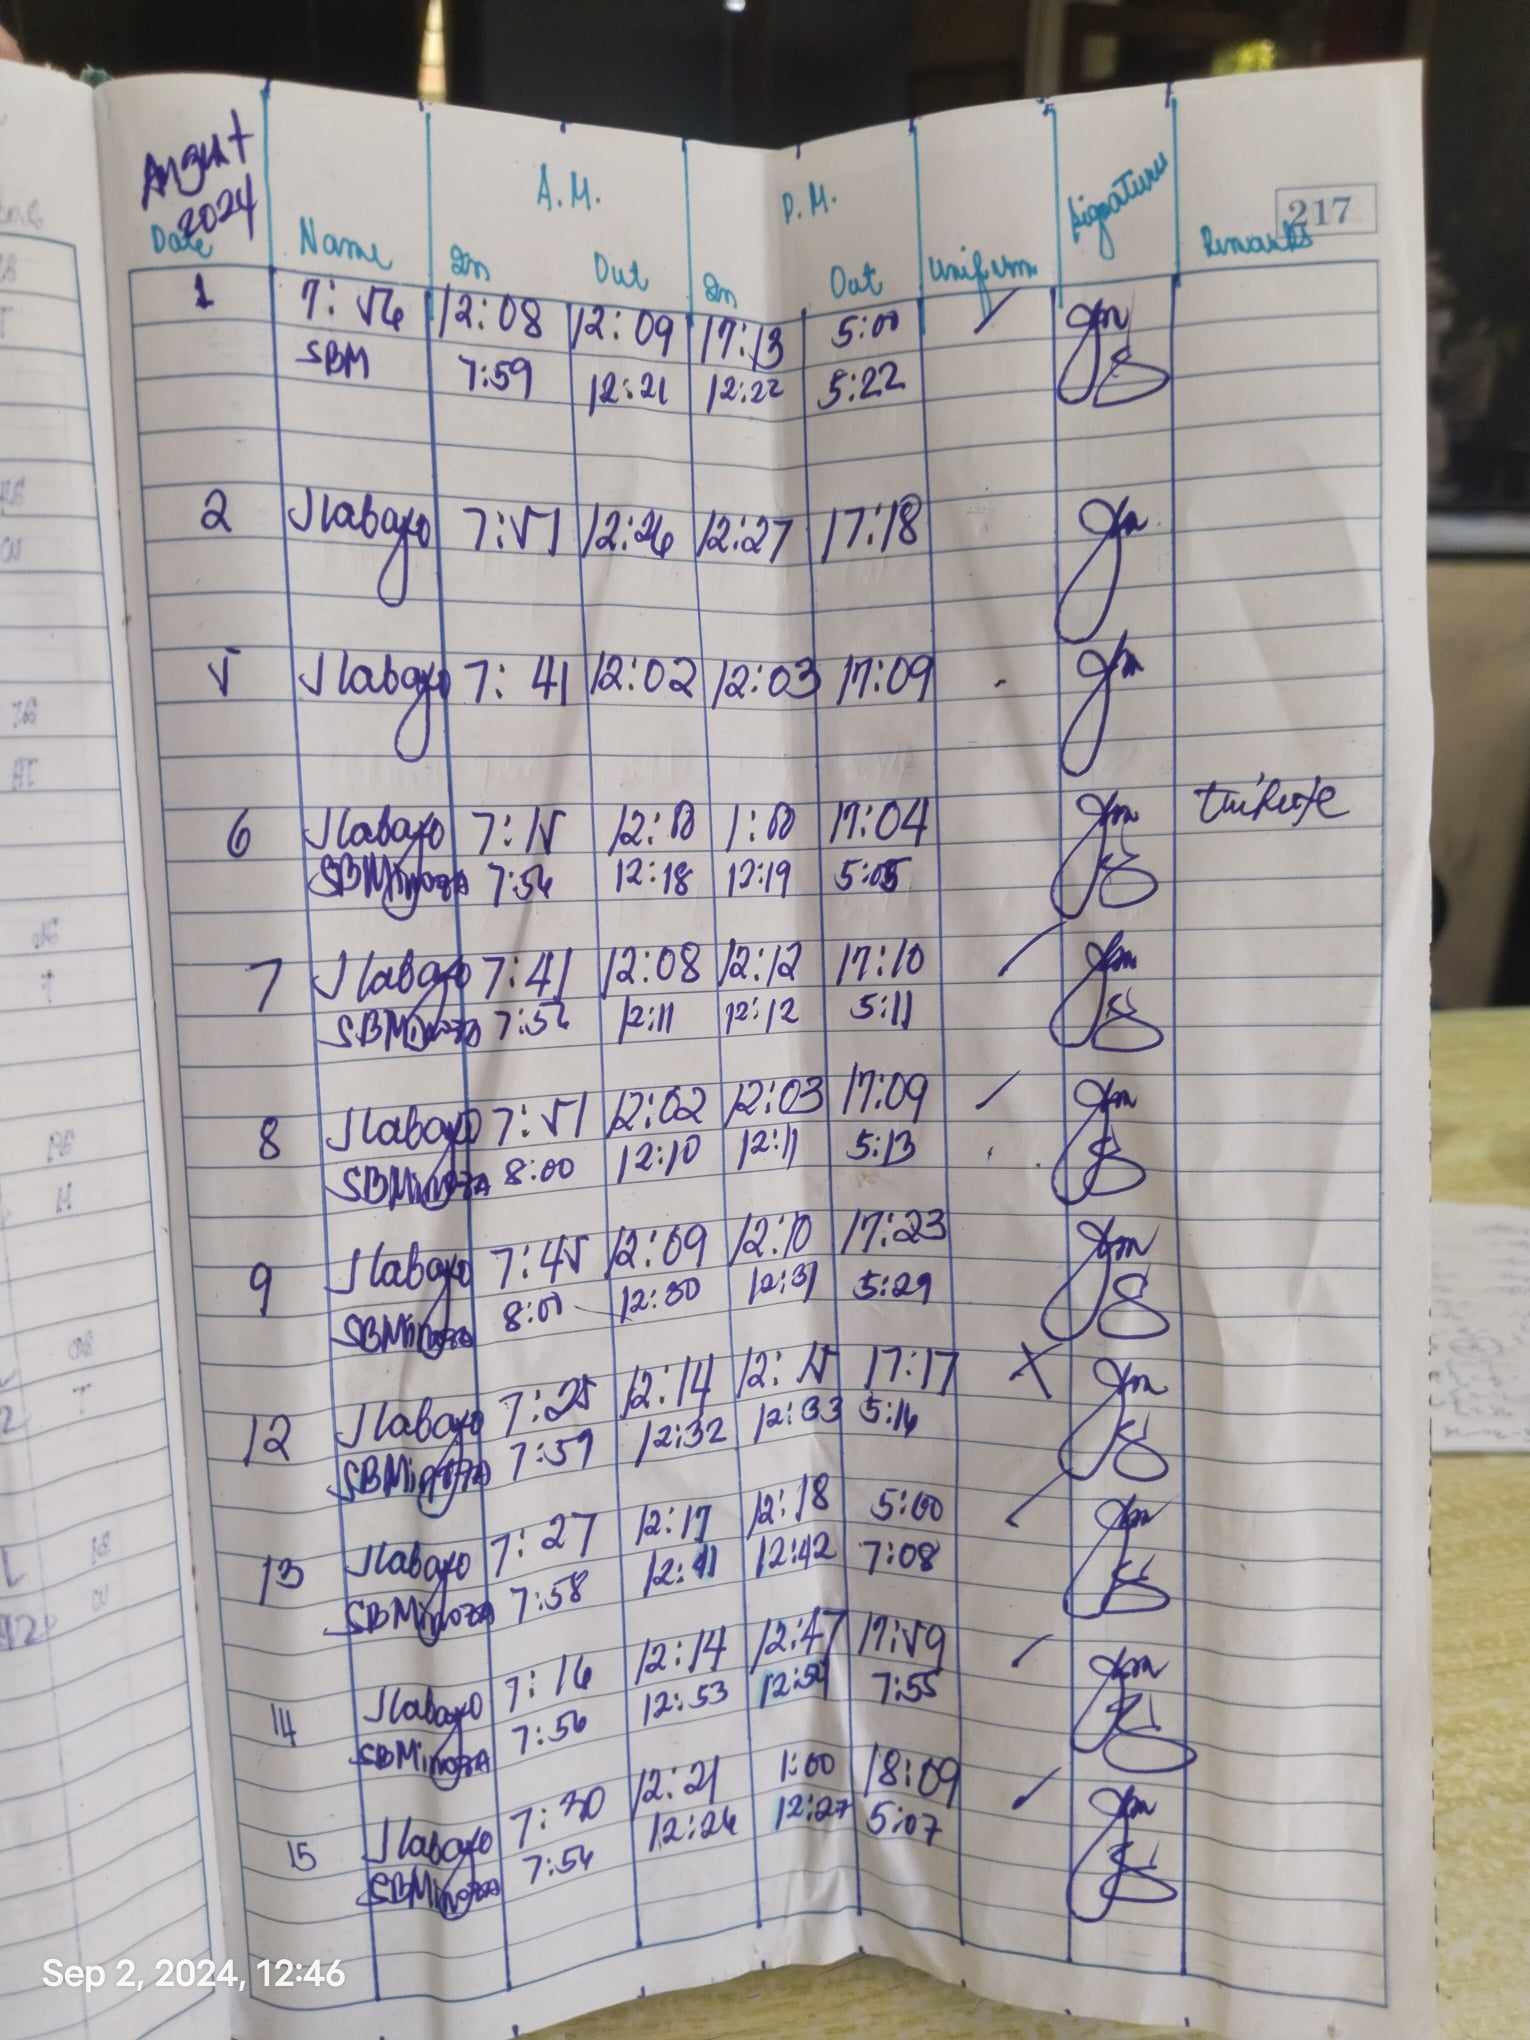 August
2024
A.M. P.M.
217
Date Name In Out In Out Uniform Signature Remarks
1 7:56 12:08 12:09 17:13 5:00
SBM 7:59 12:21 12:22 5:22
2 Jlabayo 7:51 12:26 12:27 17:18
5 Jlabayo 7:41 12:02 12:03 17:09
6 Jlabayo 7:15 12:00 1:00 17:04
SBMinoza 7:56 12:18 12:19 5:05
7 Jlabayo 7:41 12:08 12:12 17:10
SBMinoza 7:56 12:11 12:12 5:11
8 Jlabayo 7:51 12:02 12:03 17:09
SBMinoza 8:00 12:10 12:11 5:13
9 Jlabayo 7:45 12:09 12:10 17:23
SBMinoza 8:00 12:30 12:31 5:29
12 Jlabayo 7:25 12:14 12:15 17:17 X
SBMinoza 7:59 12:32 12:33 5:16
13 Jlabayo 7:27 12:17 12:18 5:00
SBMinoza 7:58 12:41 12:42 7:08
14 Jlabayo 7:16 12:14 12:47 17:59
SBMinoza 7:56 12:53 12:54 7:55
15 Jlabayo 7:30 12:21 1:00 18:09
SBMinoza 7:54 12:26 12:27 5:07
Sep 2, 2024, 12:46